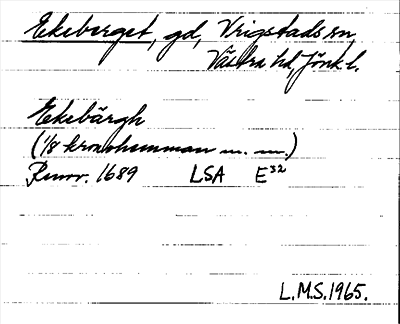 Ekeberget, gd, Vrigstads sn,
Västra hd, Jönk. l.
Ekebärgh
(1/8 kronohemman m. m.)
Renov. 1689 LSA E32
L.M.S. 1965.